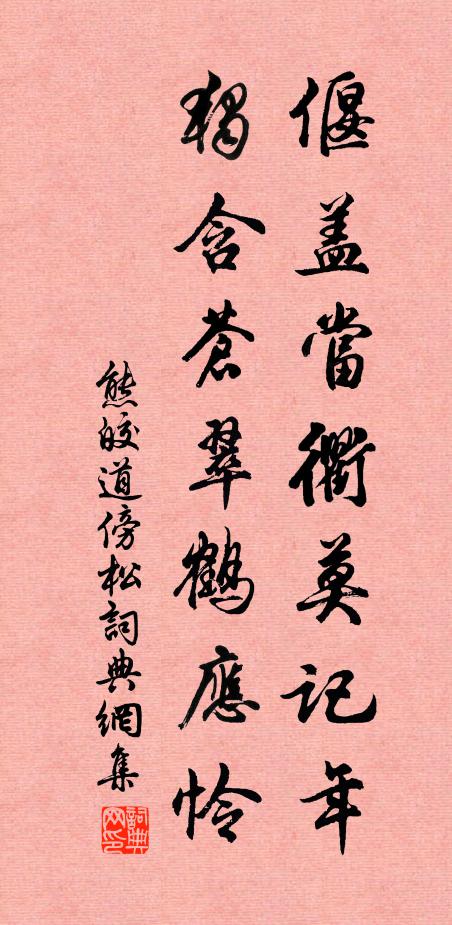 偃盖當衢莫記年
獨含蒼翠鶴應怜
熊皎道傍松詞典網集
詞典网印